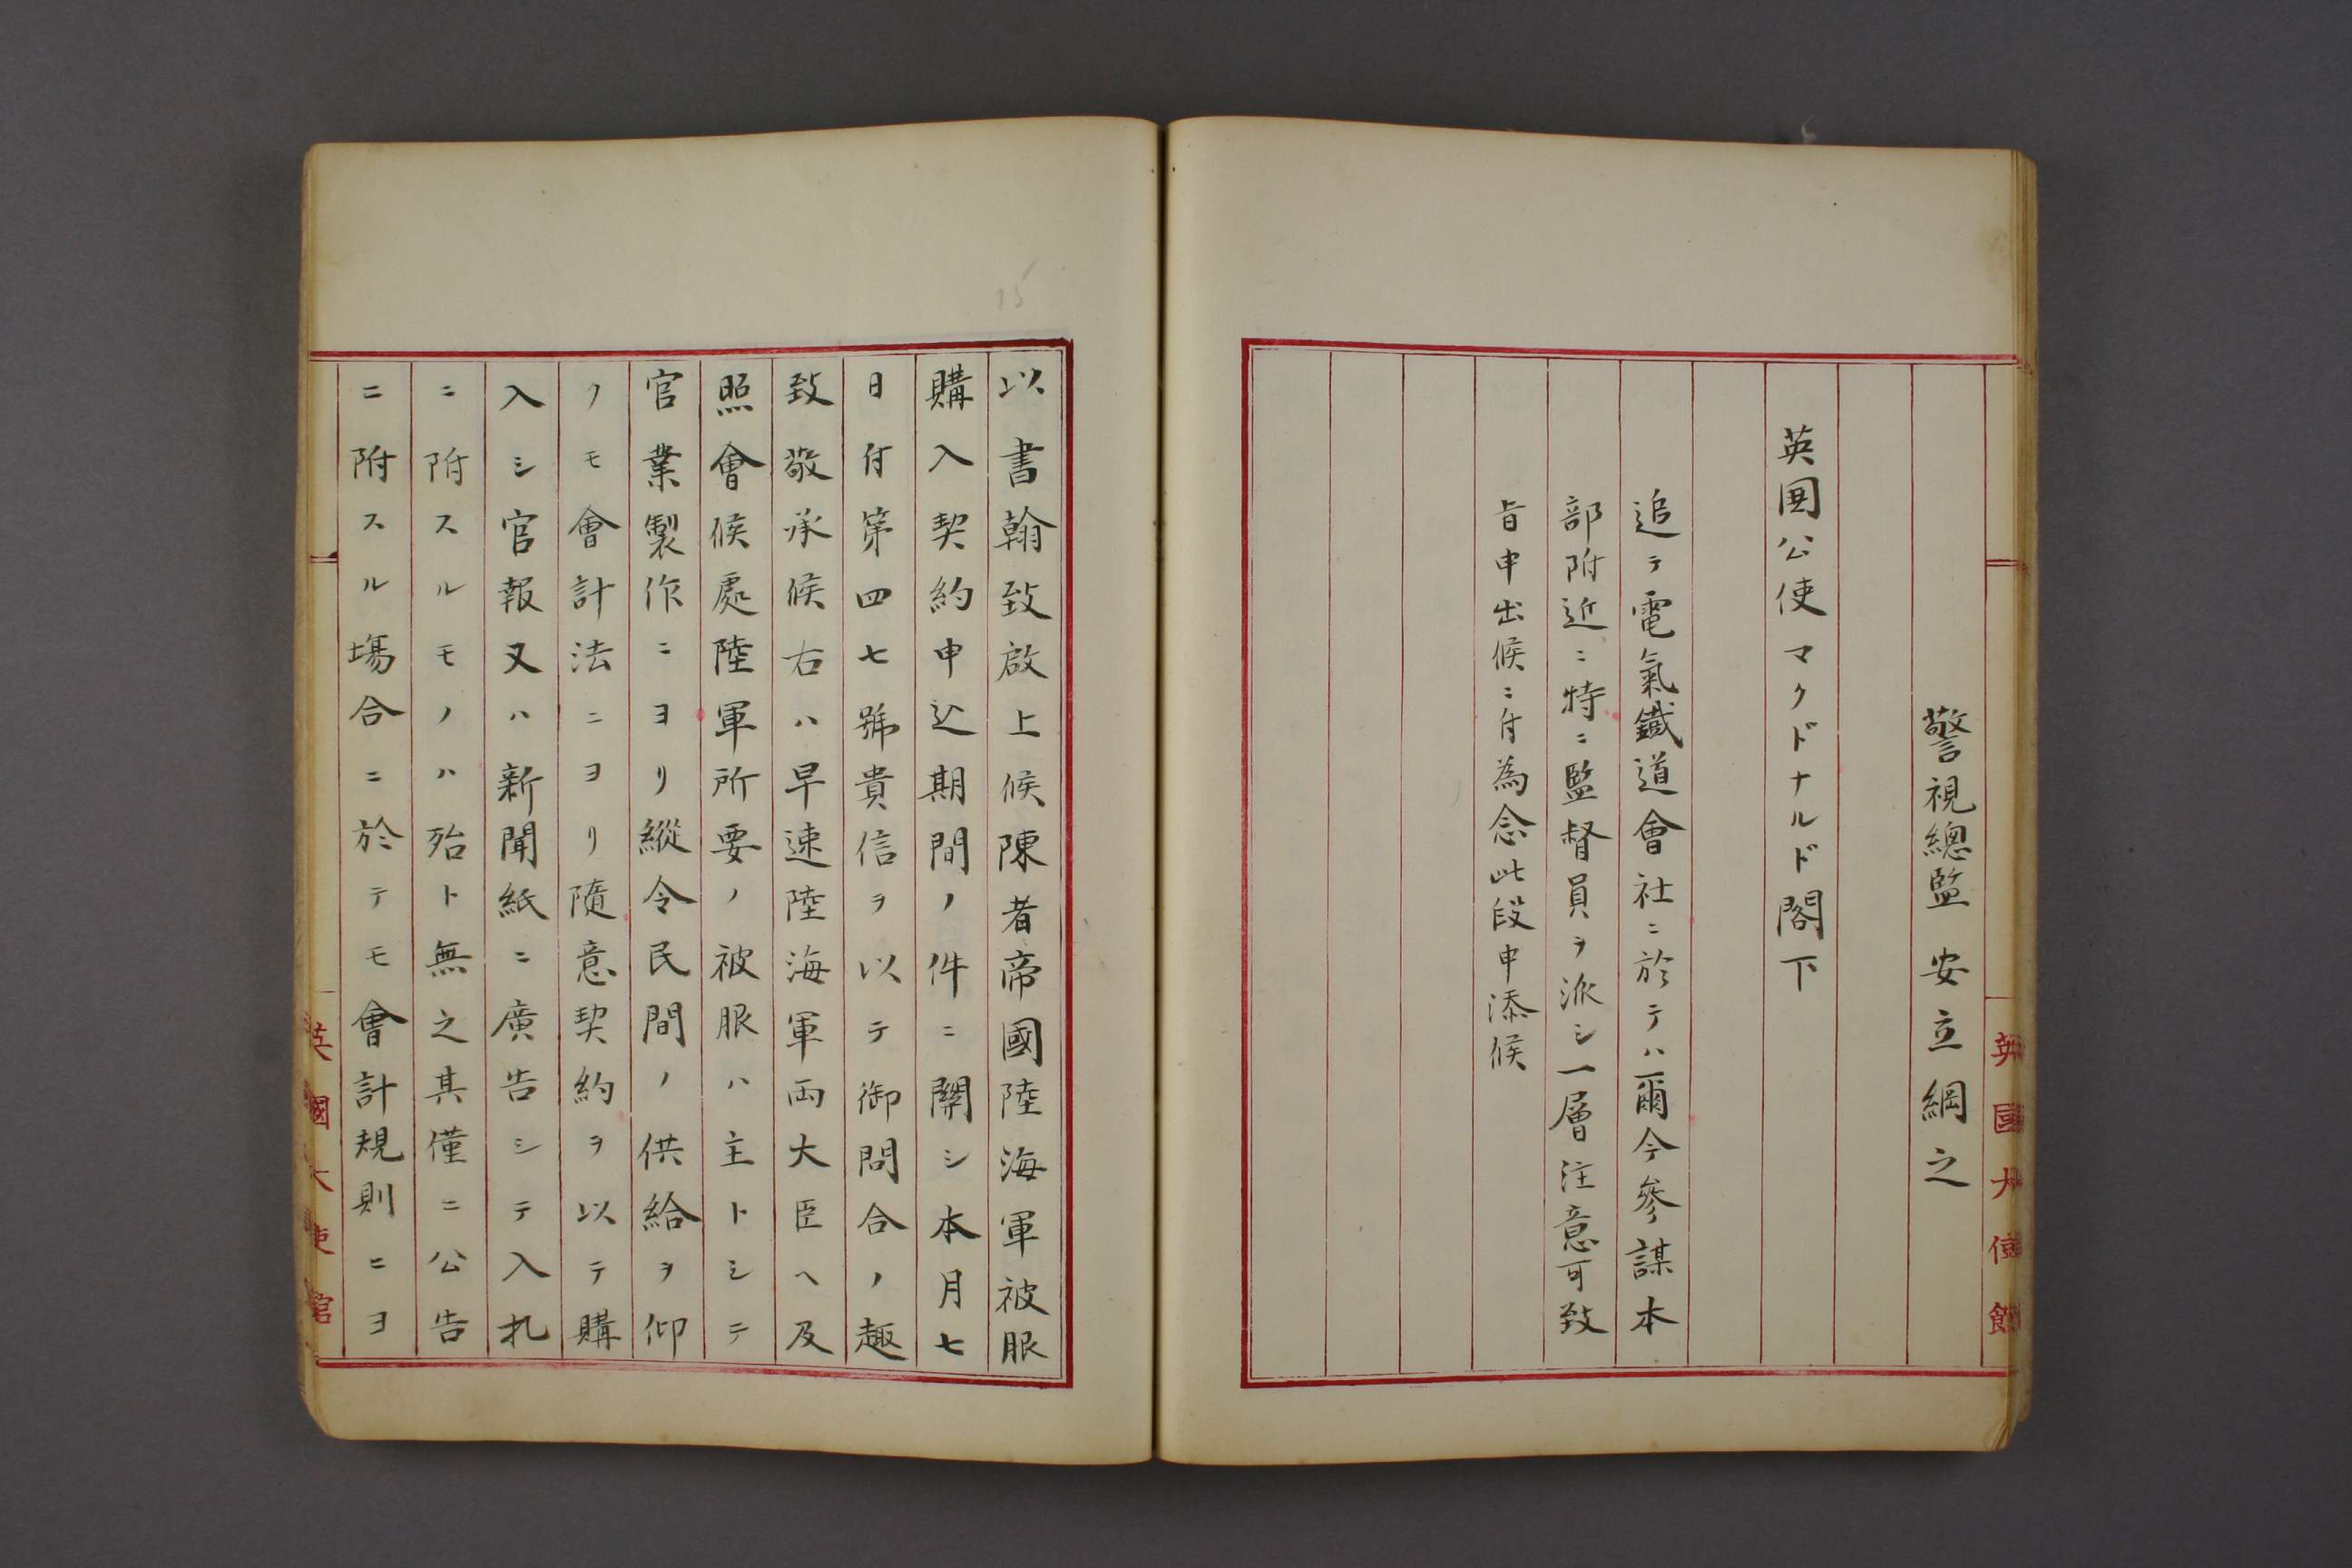 警視總監 安立綱之
英国公使マクドナルド閣下
追テ電氣鐵道會社ニ於テハ爾今參謀本
部附近ニ特ニ監督員ヲ派シ一層注意可致
旨申出候ニ付為念此段申添候
英國大使館
以書翰致啟上候陳者帝國陸海軍被服
購入契約申込期間ノ件ニ關シ本月七
日付第四七號貴信ヲ以テ御問合ノ趣
致敬承候右ハ早速陸海軍両大臣ヘ及
照會候處陸軍所要ノ被服ハ主トシテ
官業製作ニヨリ縱令民間ノ供給ヲ仰
ノモ會計法ニヨリ隨意契約ヲ以テ購
入シ官報又ハ新聞紙ニ廣告シテ入札
ニ附スルモノハ殆ト無之其僅ニ公告
ニ附スル場合ニ於テモ會計規則ニヨ
英國大使館
15